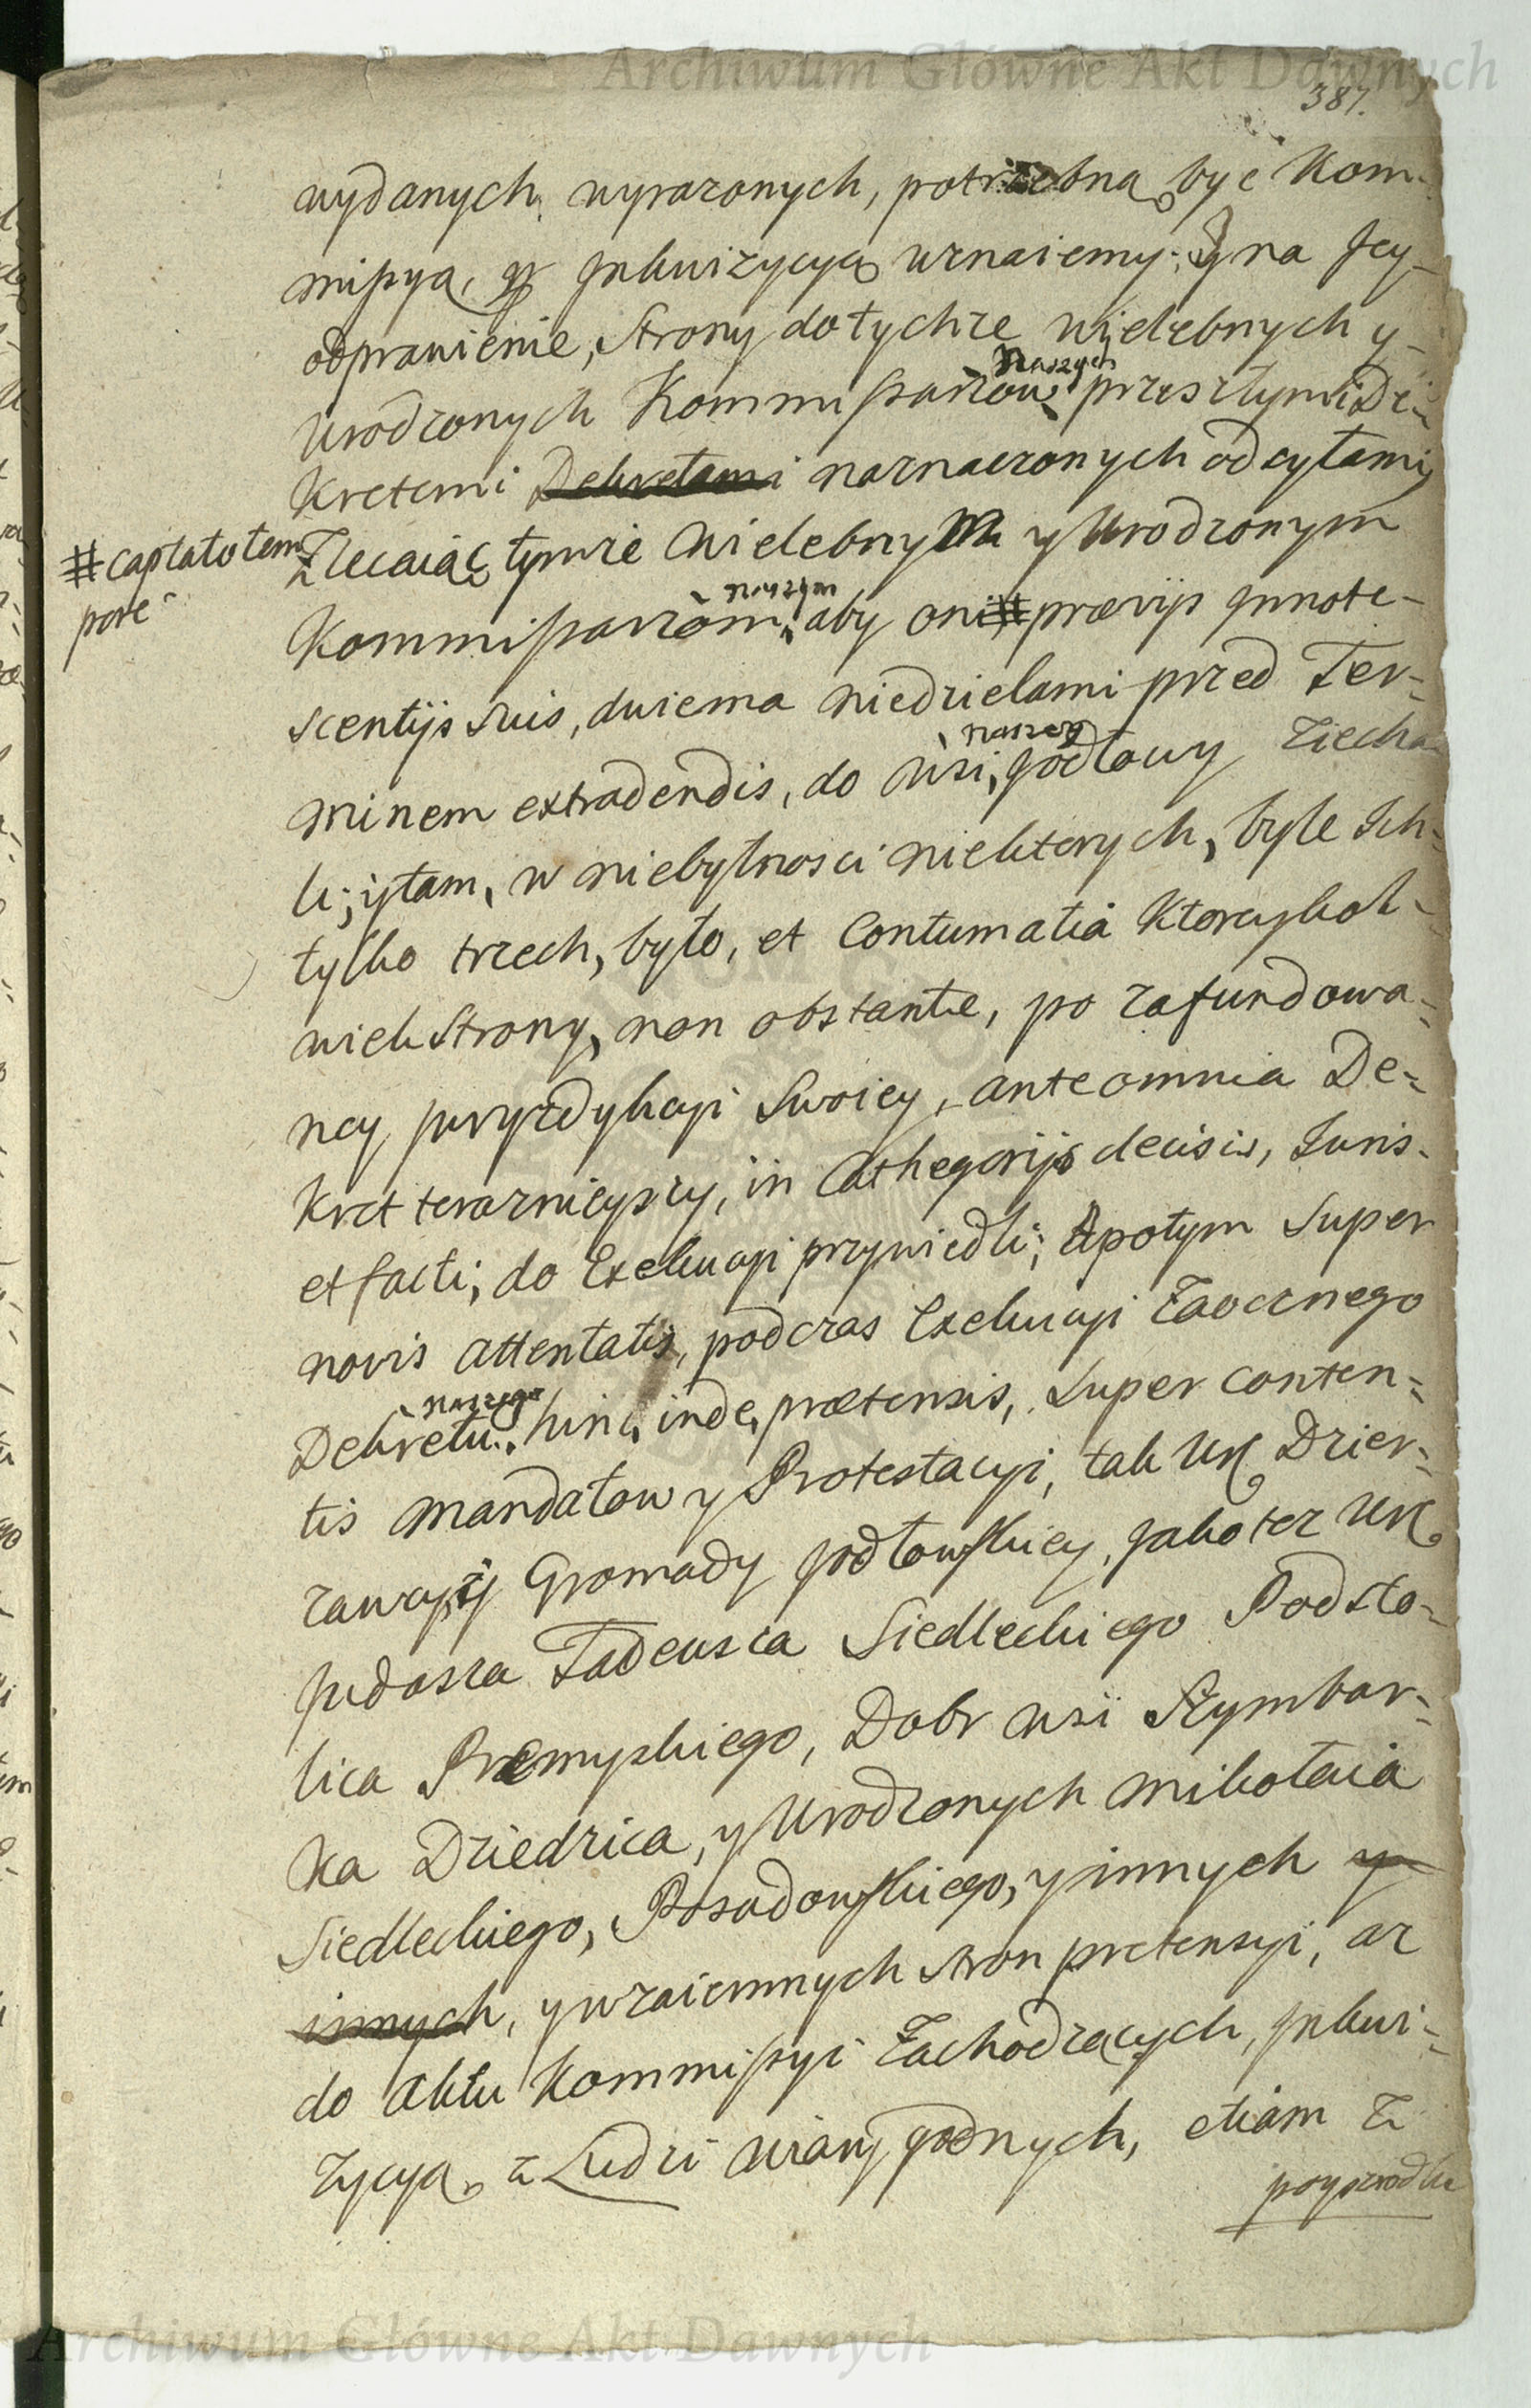 Archiwum Główne Akt Dawnych
387.
wydanych wyrazonych, potrzebną byc Kom-
missyą, y Jnkwizycyą uznaiemy; y na Jey
odprawienie, Strony do tychze wielebnych y
Urodzonych Kommissarzow Naszych przeszłymi De-
kretemi Dekretami naznaczonych odsyłamy
Zlecaiąc tymze Wielebnym y Urodzonym
# captato tem
pore
Kommissarzom naszym, aby oni # prævijs Jnnote-
scentijs suis, dwiema niedzielami przed Ter-
minem extradendis, do Wsi naszey Jodłowy ziecha-
li; ytam, w niebytnosci niektorych, byle Jch
tylko trzech, było, et Contumatia Ktoreykol-
wiek Strony, non obstante, po zafundowa-
ney juryzdykcyi Swoiey, ante omnia De-
kret terazniejszy, in Cathegorijs decisis, Juris
et facti, do Exekucyi przywiedli; A potym Super
novis attentatis, podczas Exekucyi Zaocznego
Dekretu naszego, hinc, inde, prætensis, super conten-
tis Mandatow y Protestacyi, tak Ur. Dzier-
zawczy Gromady Jodłowskiey, Jako tez Ur.
Judasza Tadeusza Siedleckiego Podsto-
lica Przemyskiego, Dobr Wsi Szymbar-
ka Dziedzica, y Urodzonych Mikołaia
Siedleckiego, Rosadowskiego, y innych y
innych, y wzaiemnych stron pretensyi, az
do Aktu Kommissyi Zachodzących, Jnkwi-
zycyą, z Ludzi Wiary godnych, etiam z
przysiodka
Archiwum Główne Akt Dawnych